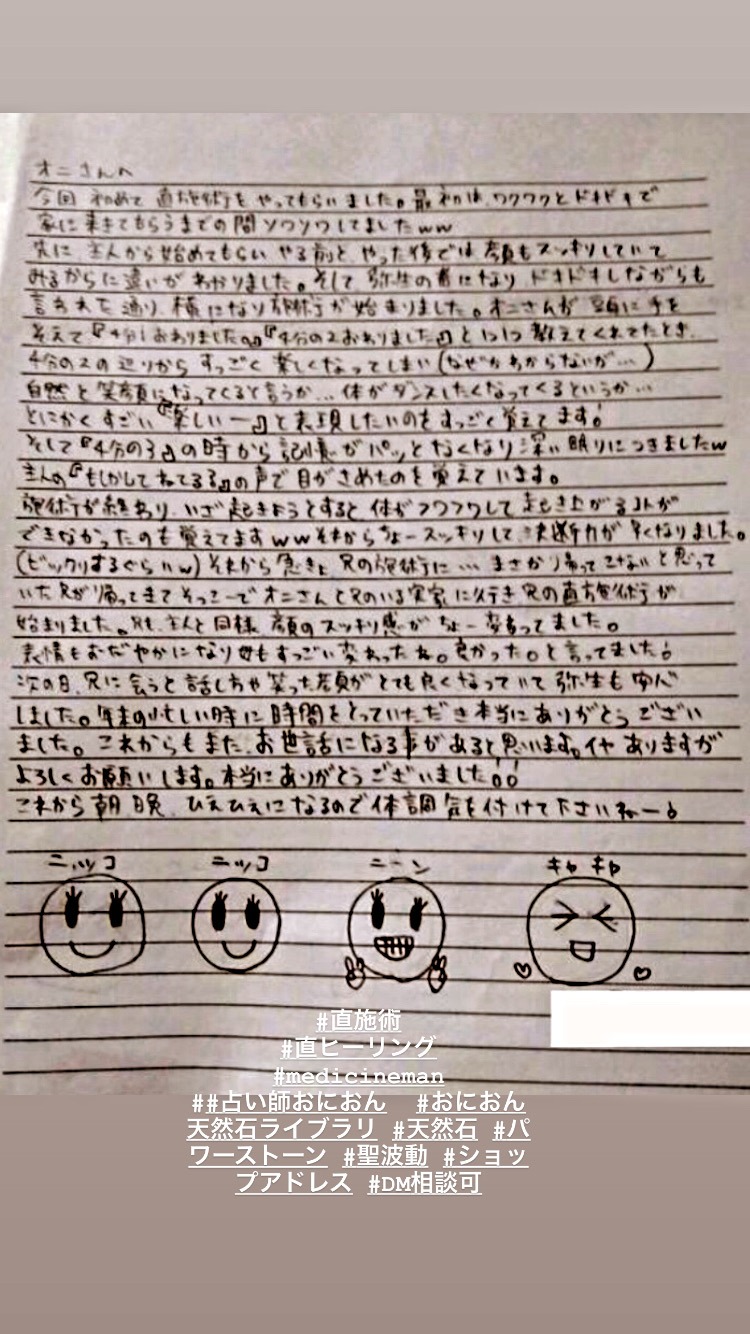 オニさんへ
今回 初めて 直施術を やってもらいました。最初は、ワクワクと ドキドキで
家に来きてもらうまでの間ソワソワしてましたww
先に、主人から始めてもらい やる前と、やった後では 顔もスッキリしていて
みるからに違いがわかりました。そして 弥生の番になり ドキドキしながらも
言われた通り、横になり施術が始まりました。オニさんが 頭に手を
そえて『4分1おわりました。』『4分の2おわりました』と 1つ1つ 教えてくれてたとき、
4分の2の辺りから すっごく 楽しくなってしまい(なぜかわからないが…)
自然と笑顔になってくると言うか… 体がダンスしたくなってくるというか…
とにかく すごい『楽しいー』と表現したいのをすっごく覚えてます!
そして『4分の3』の時から記憶がパッとなくなり深い眠りにつきましたw
主人の『もしかしてねてる?』の声で目がさめたのを覚えています。
施術が終わり、いざ起きようとすると 体がフワフワして 起き上がる事が
できなかったのも覚えてますwwそれからちょースッキリして 決断力が早くなりました。
(ビックリするぐらいw)それから急きょ 兄の施術に… まさか帰ってこないと思って
いた兄が帰ってきてそっこーで オニさんと兄のいる実家に行き 兄の直施術が
始まりました。兄も主人と同様、顔のスッキリ感がちょー変わってました。
表情もおだやかになり母もすっごい変わったね。良かった。と言ってました!
次の日、兄に会うと話し方や笑った顔がとても良くなっていて 弥生も安心
しました。年末の忙しい時に時間をとっていただき本当にありがとうござい
ました。これからもまた、お世話になる事があると思います。イヤ ありますが
よろしくお願いします。本当にありがとうございました!!
これから朝、晩、ひえひえになるので体調気を付けて下さいねー!
ニッコ ニッコ ニーン キャ キャ
#直施術
#直ヒーリング
#medicineman
##占い師おにおん #おにおん
天然石ライブラリ #天然石 #パ
ワーストーン #聖波動 #ショッ
プアドレス #DM相談可